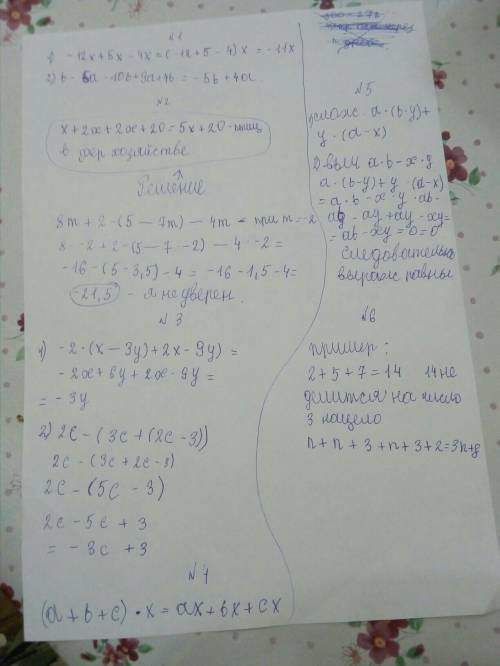 №1
1) -12x+5x-4x=(-12+5-4)x = -11x
2) b - 5a -10b+9a+4b = -5b+4a
№2
x+2x+2x+20=5x+20-птиц
в хозяйстве
Решение
8m+2-(5-7m)-4m = при m=-2
8·-2+2-(5-7·-2)-4·-2=
-16-(5-3,5)-4=-16-1,5-4=
-21,5 - я не уверен.
№3
1) -2·(x-3y)+2x-9y)=
-2x+6y+2x-9y=
=-3y
2) 2c-(3c+(2c-3))
2c-(3c+2c-3)
2c-(5c-3)
2c-5c+3
=-3c+3
№4
(a+b+c)·x=ax+bx+cx
№5
a·(b-y)+
y·(a-x)
2) выч a·b-x·y
a·(b-y)+y·(a-x)
=a·b-x·y ab-
-ay+ay-xy=
=ab-xy=0=0
следовательно
выраж равны
№6
пример:
2+5+7=14 14 не
делится на число
3 нацело
n+n+3+n+3+2=3n+8